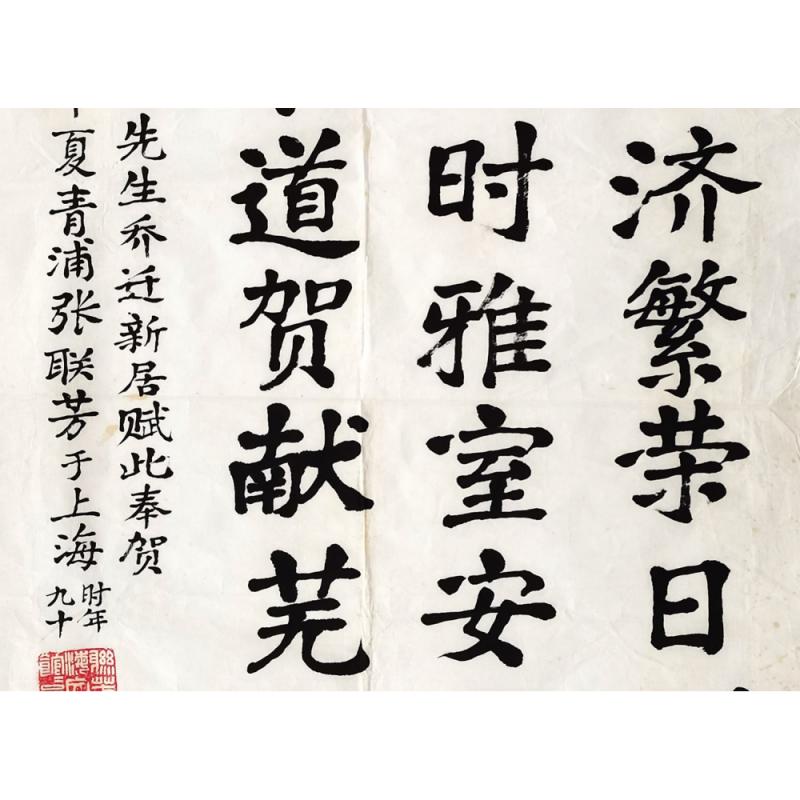 济繁荣日
时雅室安
道贺献芜
先生乔迁新居赋此奉贺
夏青浦张联芳于上海
时年
九十